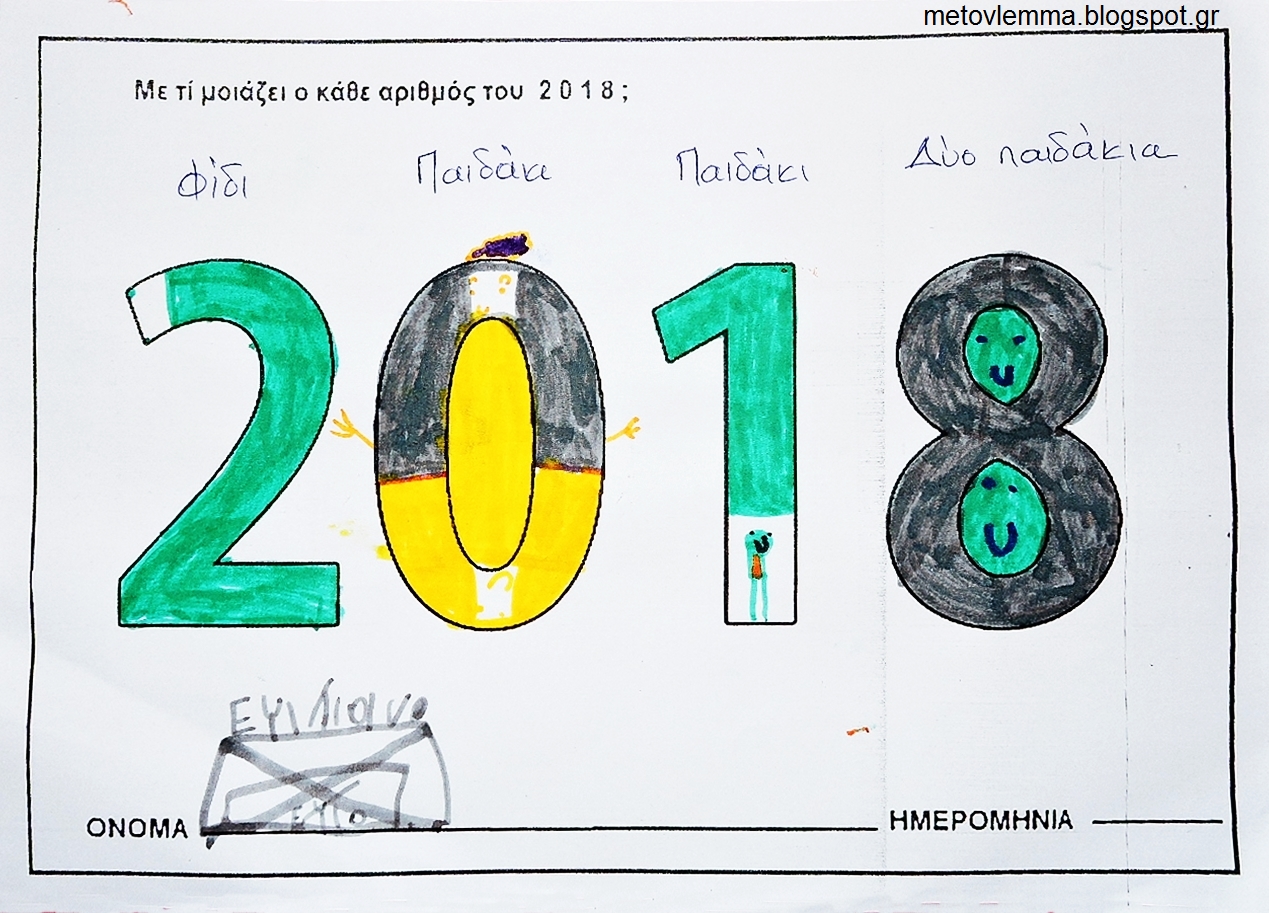 metovlemma.blogspot.gr
Με τί μοιάζει ο κάθε αριθμός του 2 0 1 8 ;
Φίδι Παιδάκι Παιδάκι Δύο παιδάκια
2018
ΟΝΟΜΑ ΗΜΕΡΟΜΗΝΙΑ